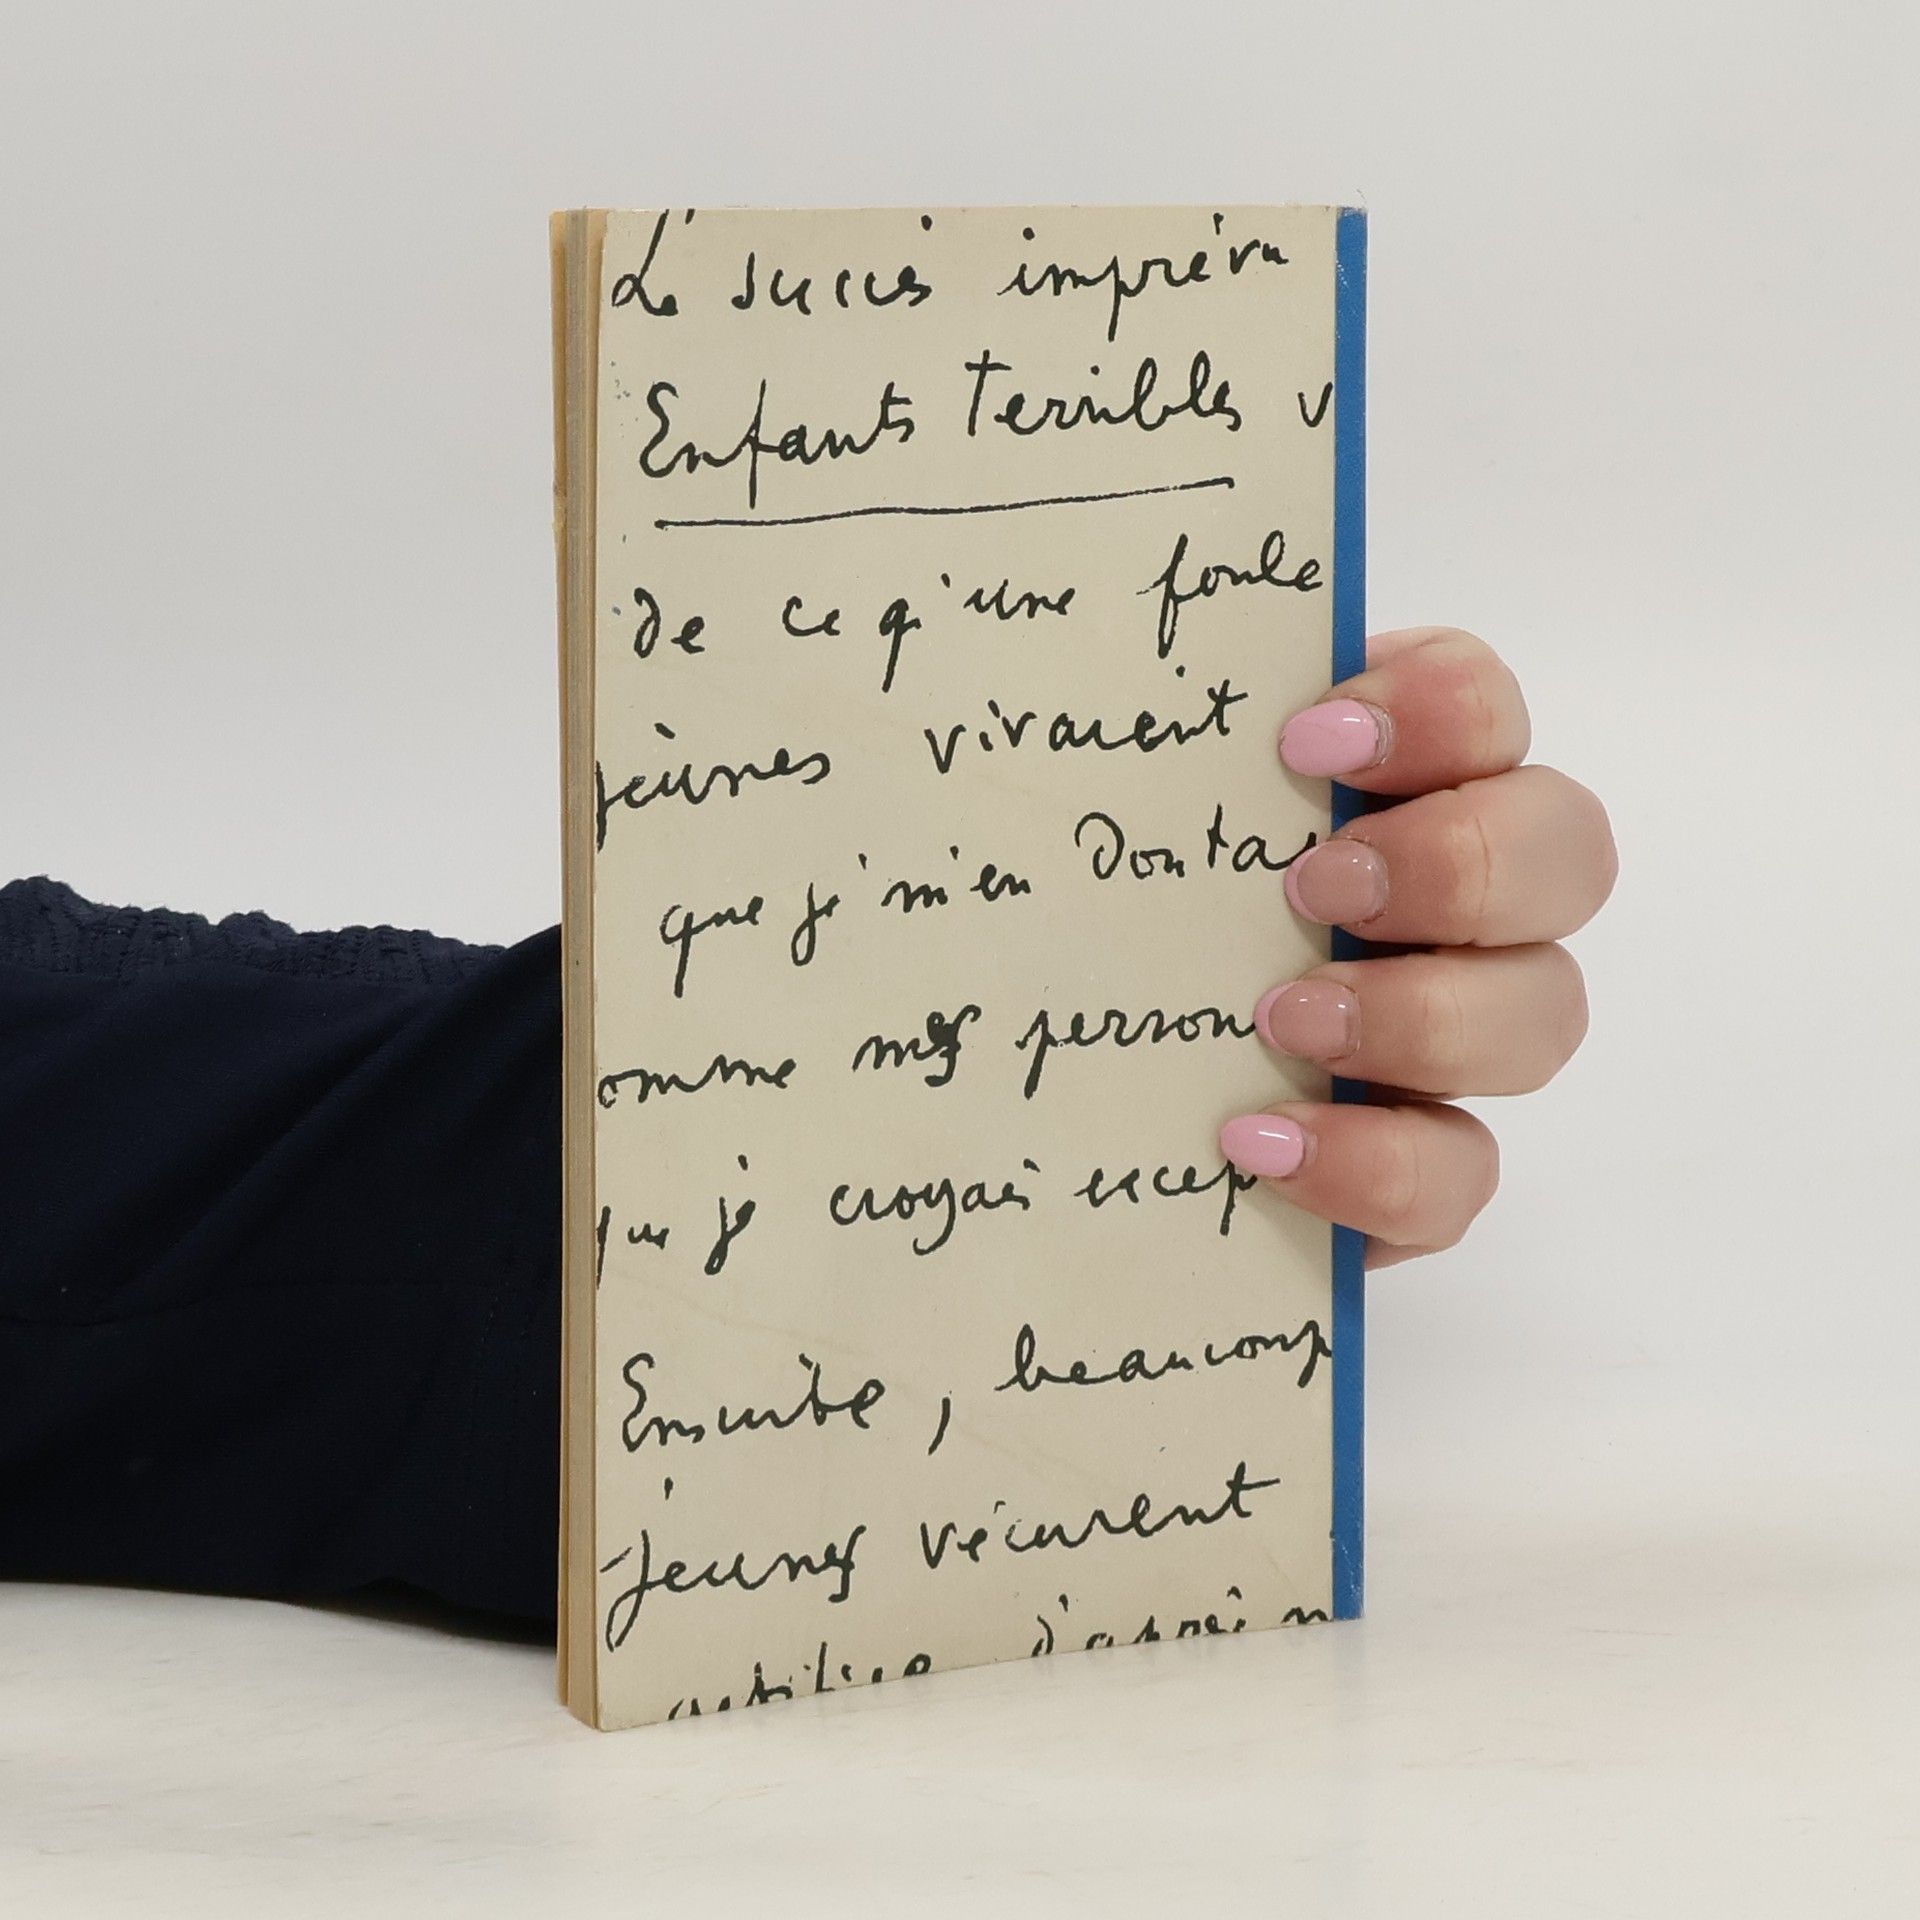 Le succès imprévu
Enfants Terribles v
de ce qu'une foule
jeunes vivaient
que je m'en doutas
omme mes person
que je croyais excep
Ensuite, beaucoup
jeunes vécurent
d'après m